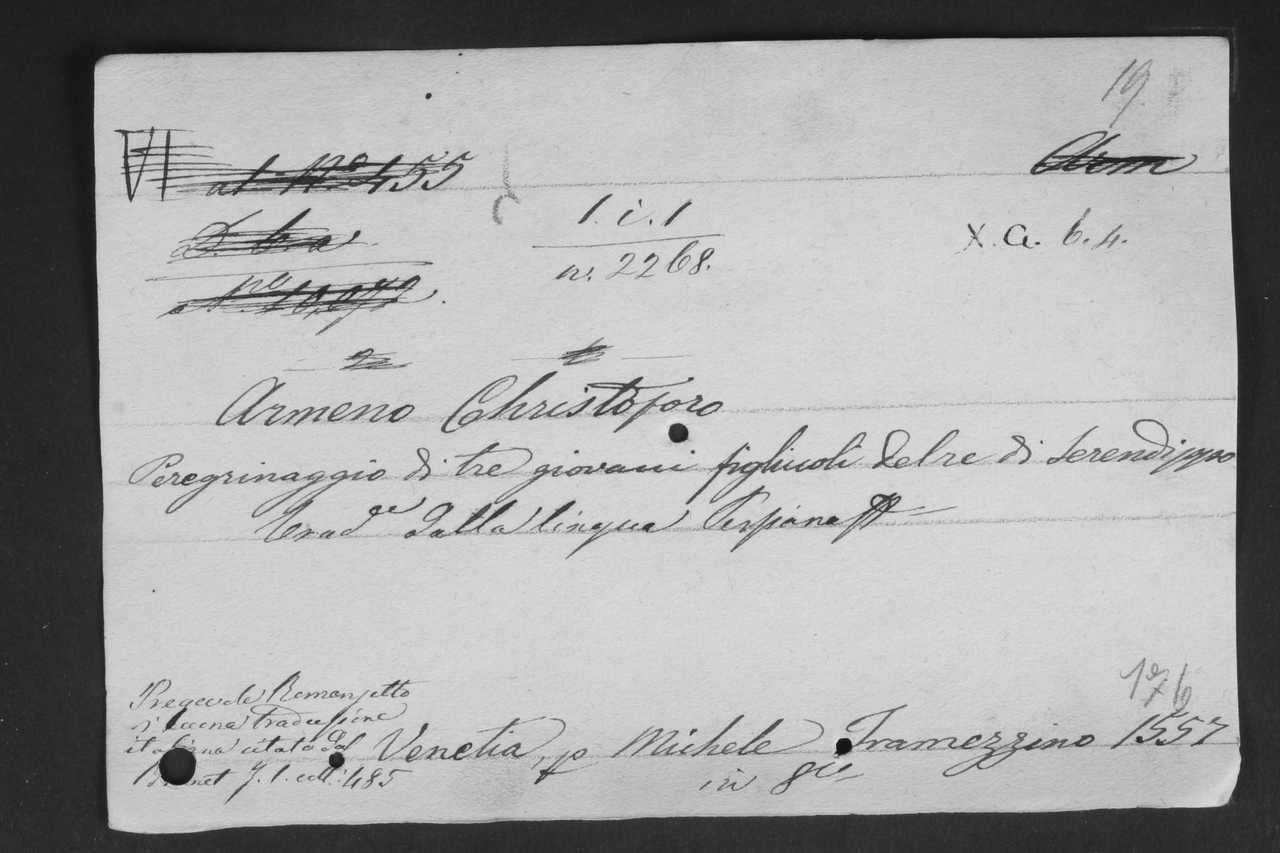 19
VI al Nº 455
Arm
1. i. 1
n. 2268.
X. a. 6. 4.
Armeno Christoforo
Peregrinaggio di tre giovani figliuoli del re di Serendippo
Trad.e dalla lingua Persiana
Pregevole Romanzetto
di buona traduzione
italiana citato dal
Brunet T. 1. col: 485
Venetia, p Michele Tramezzino 1557
in 8º